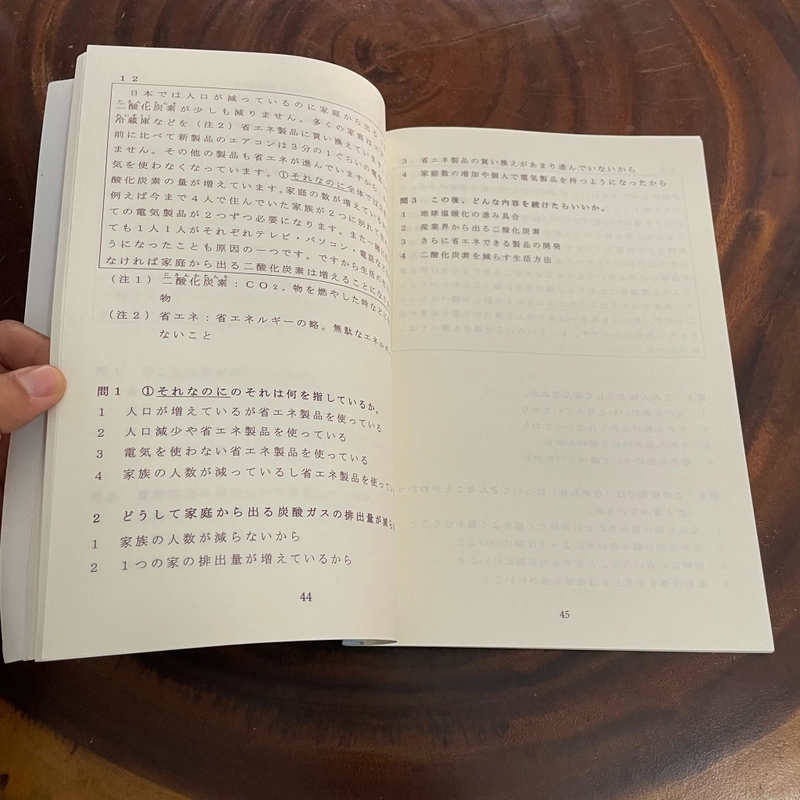 12
日本では人口が減っているのに家庭から出る
二酸化炭素が少しも減りません。多くの家庭は
冷蔵庫などを（注2）省エネ製品に買い換えています
前に比べて新製品のエアコンは3分の1ぐらいの電気
ません。その他の製品も省エネが進んでいますから
気を使わなくなっています。①それなのに全体では
酸化炭素の量が増えています。家庭の数が増えている
例えば今まで4人で住んでいた家族が2つに別れて
ての電気製品が2つずつ必要になります。また一緒
ても1人1人がそれぞれテレビ・パソコン・電話
うになったことも原因の一つです。ですから生活の
なければ家庭から出る二酸化炭素は増えることにな
（注1）二酸化炭素：CO2。物を燃やした時などに
物
（注2）省エネ：省エネルギーの略。無駄なエネルギー
ないこと
問1 ①それなのにのそれは何を指しているか。
1 人口が増えているが省エネ製品を使っている
2 人口減少や省エネ製品を使っている
3 電気を使わない省エネ製品を使っている
4 家族の人数が減っているし省エネ製品を使ってい
2 どうして家庭から出る炭酸ガスの排出量が減ら
1 家族の人数が減らないから
2 1つの家の排出量が増えているから
44
3 省エネ製品の買い換えがあまり進んでいないから
4 家庭数の増加や個人で電気製品を持つようになったから
問3 この後、どんな内容を続けたらいいか。
1 地球温暖化の進み具合
2 産業界から出る二酸化炭素
3 さらに省エネできる製品の開発
4 二酸化炭素を減らす生活方法
45